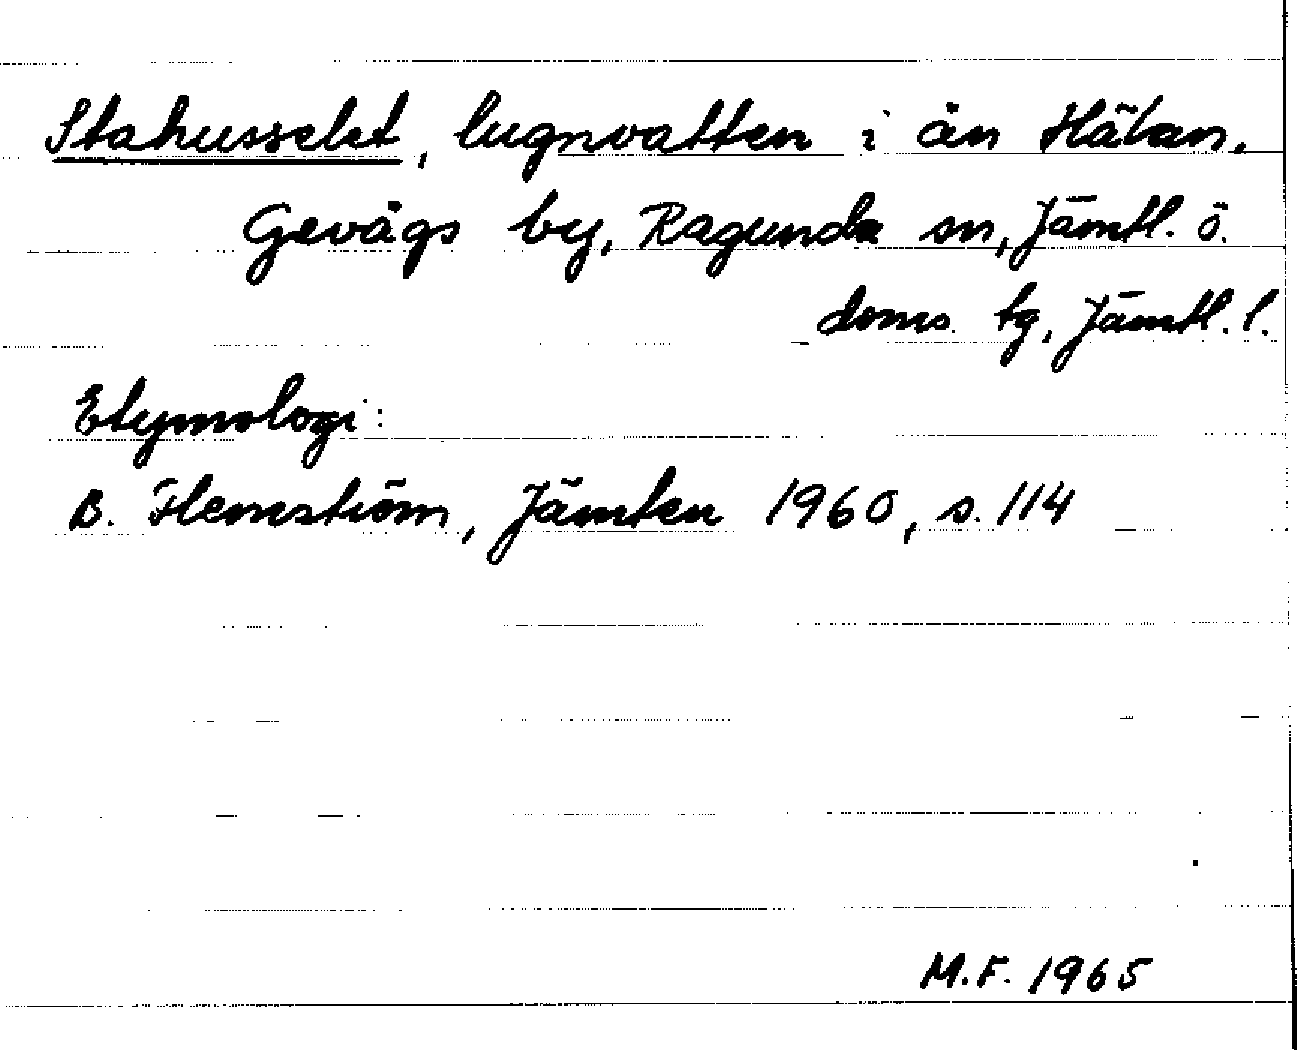 Stahusselet, lugnvatten i ån Hätan.
Gevågs by, Ragunda sn, Jämtl. ö.
doms. tg, Jämtl. l.
Etymologi:
B. Flemström, Jämten 1960, s. 114
M.F. 1965